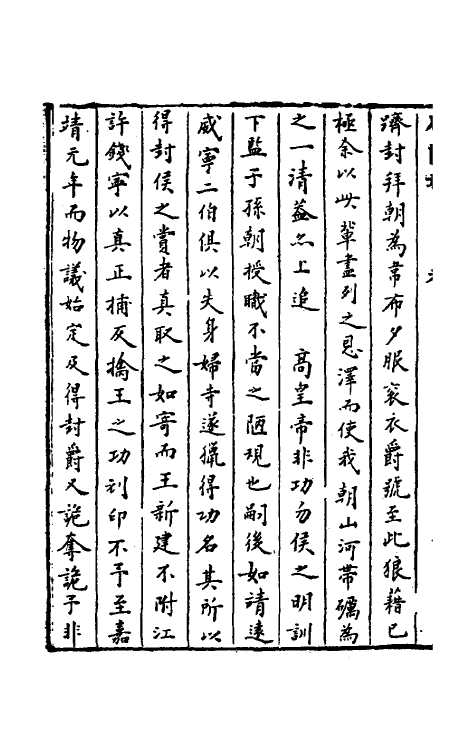 躋封拜朝為韋布夕眠衮衣爵號至此狼藉已
極余以此輩盡列之恩澤而使我朝山河帶礪為
之一清蓋亦上追　高皇帝非功勿侯之明訓
下監子孫朝授職不當之陋現也嗣後如靖遠
威寧二伯俱以失身婦寺遂獵得功名其所以
得封侯之賞者真取之如寄而王新建不附江
許錢寧以真正捕反擒王之功刓印不予至嘉
靖元年而物議始定及得封爵又詭奪詭予非